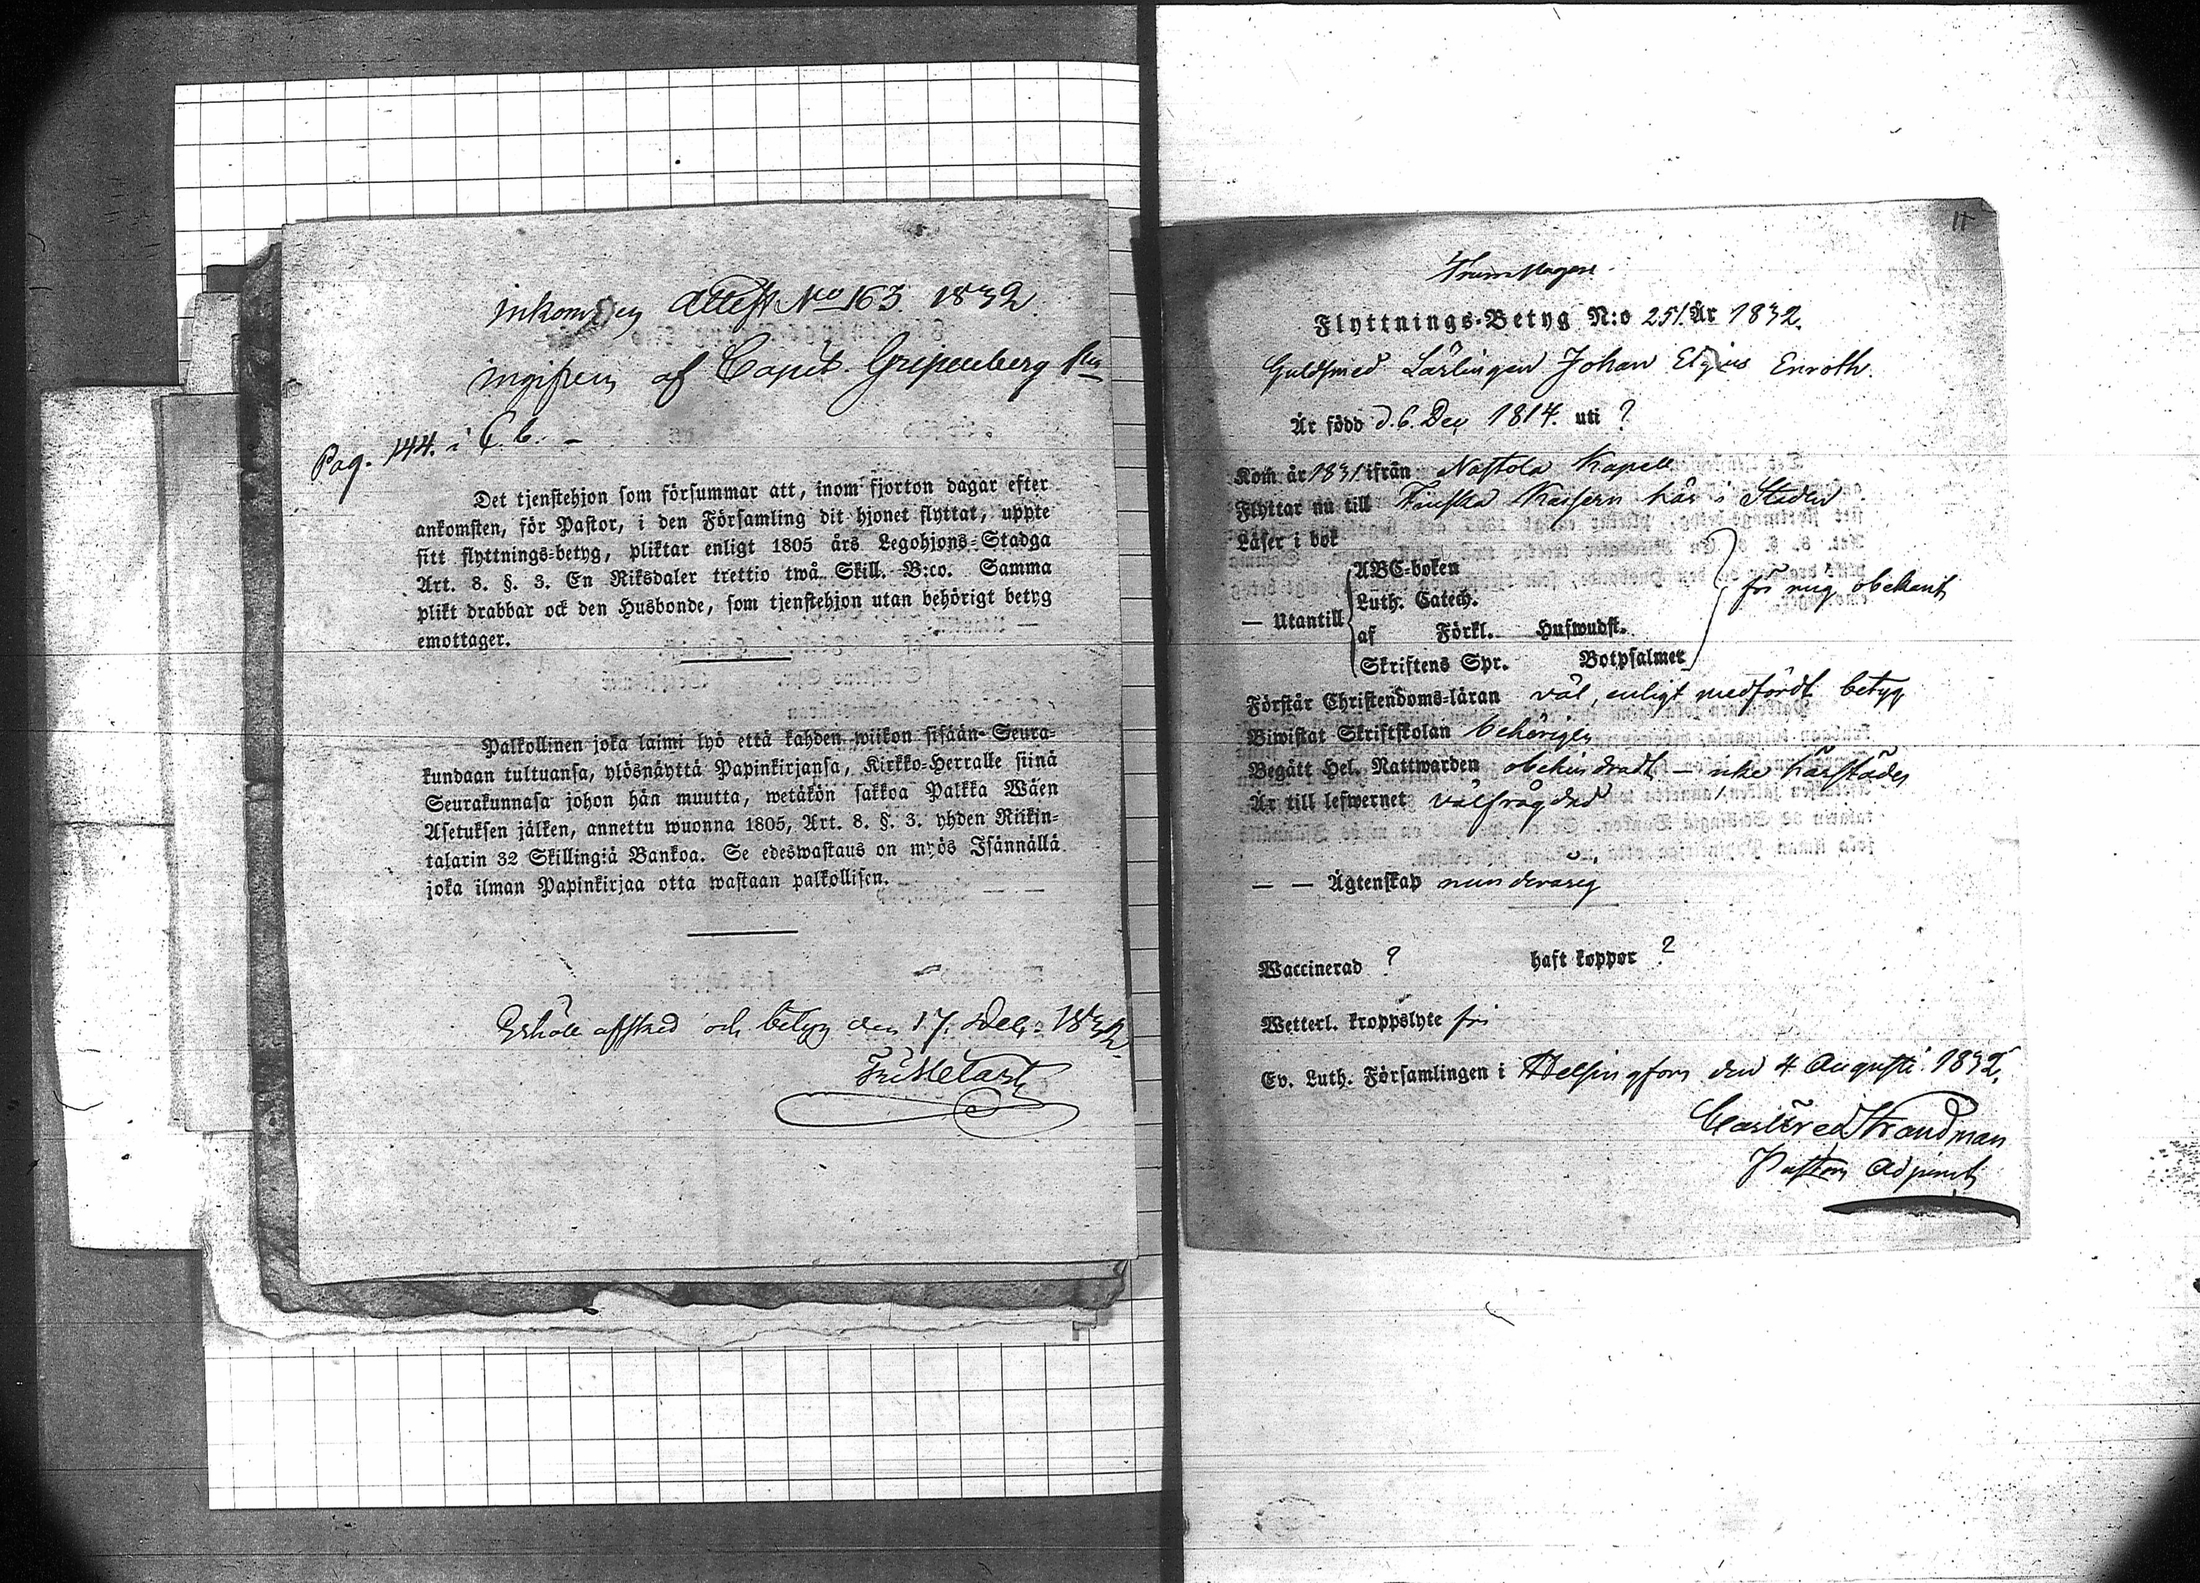 inkommen Attest No 163. 1832.
ingifven af Capit. Gripenberg
Pag. 144. i C. b. -
Det tjenstehjon som försummar att, inom fjorton dagar efter
ankomsten, för Pastor, i den Församling dit hjonet flyttat, uppte
sitt flyttnings-betyg, pliktar enligt 1805 års Legohjons-Stadga
Art. 8. §. 3. En Riksdaler trettio twå Skill. B:co. Samma
plikt drabbar ock den Husbonde, som tjenstehjon utan behörigt betyg
emottager.
Palkollinen joka laimi lyö että kahden wiikon sisään Seura-
kundaan tultuansa, ylösnäyttä Papinkirjansa, Kirkko-Herralle siinä
Seurakunnasa johon hän muutta, wetäkön sakkoa Palkka Wäen
Asetuksen jälken, annettu wuonna 1805, Art. 8. §. 3. yhden Riikin-
talarin 32 Skillingiä Bankoa. Se edeswastaus on myös Isännällä
joka ilman Papinkirjaa otta wastaan palkollisen.
Erhöll afsked och betyg den 17. Dec. 1832.
11
Flyttnings-Betyg N:o 251. År 1832.
Guldsmed Lärlingen Johan Enroth.
Är född d. 6. Dec 1814. uti ?
Kom år 1831 ifrån Nastola Kapell
Flyttar nu till Finska Kasern här i Staden
Läser i bok
— Utantill
ABC-boken
Luth. Catech.
af Förkl. Huswudst.
Skriftens Spr. Botpsalmer
för mig obekant
Förstår Christendoms-läran väl, enligt medfördt betyg
Biwistat Skriftskolan behörigen
Begått Hel. Nattwarden obehindradt — icke härstädes
Är till lefwernet välfrägdad
— — Ägtenskap
Waccinerad ? haft koppor ?
Wetterl. kroppslyte fri
Ev. Luth. Församlingen i Helsingfors den 4 Augusti 1832.
Carl Fred Strandman
Pastors Adjunct